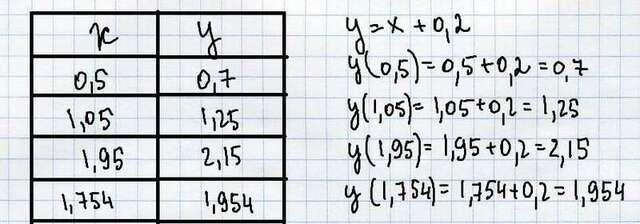 x y
0,5 0,7
1,05 1,25
1,95 2,15
1,754 1,954
y=x+0,2
y(0,5)=0,5+0,2=0,7
y(1,05)=1,05+0,2=1,25
y(1,95)=1,95+0,2=2,15
y(1,754)=1,754+0,2=1,954